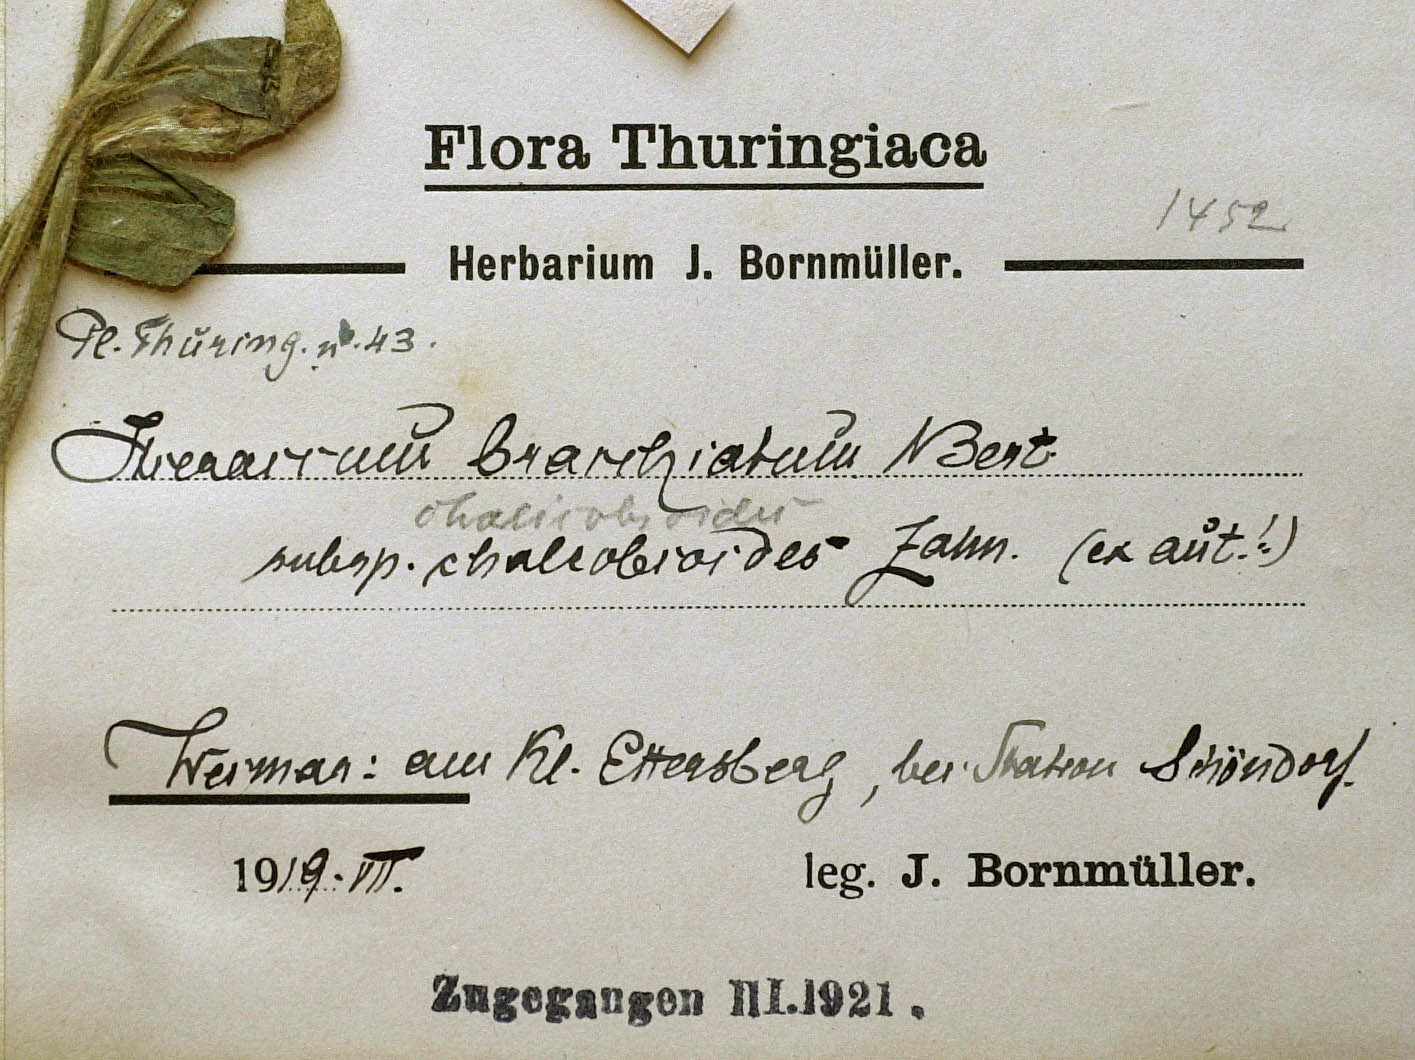 Flora Thuringiaca
1452
Herbarium J. Bornmüller.
Pl. Thüring. nº. 43.
Hieracium brachiatum Bert
subsp. chalcobioides Zahn. (ex aut.!)
Weimar: am Kl. Ettersberg, bei Station Schöndorf.
1919. VII.
leg. J. Bornmüller.
Zugegangen III.1921.